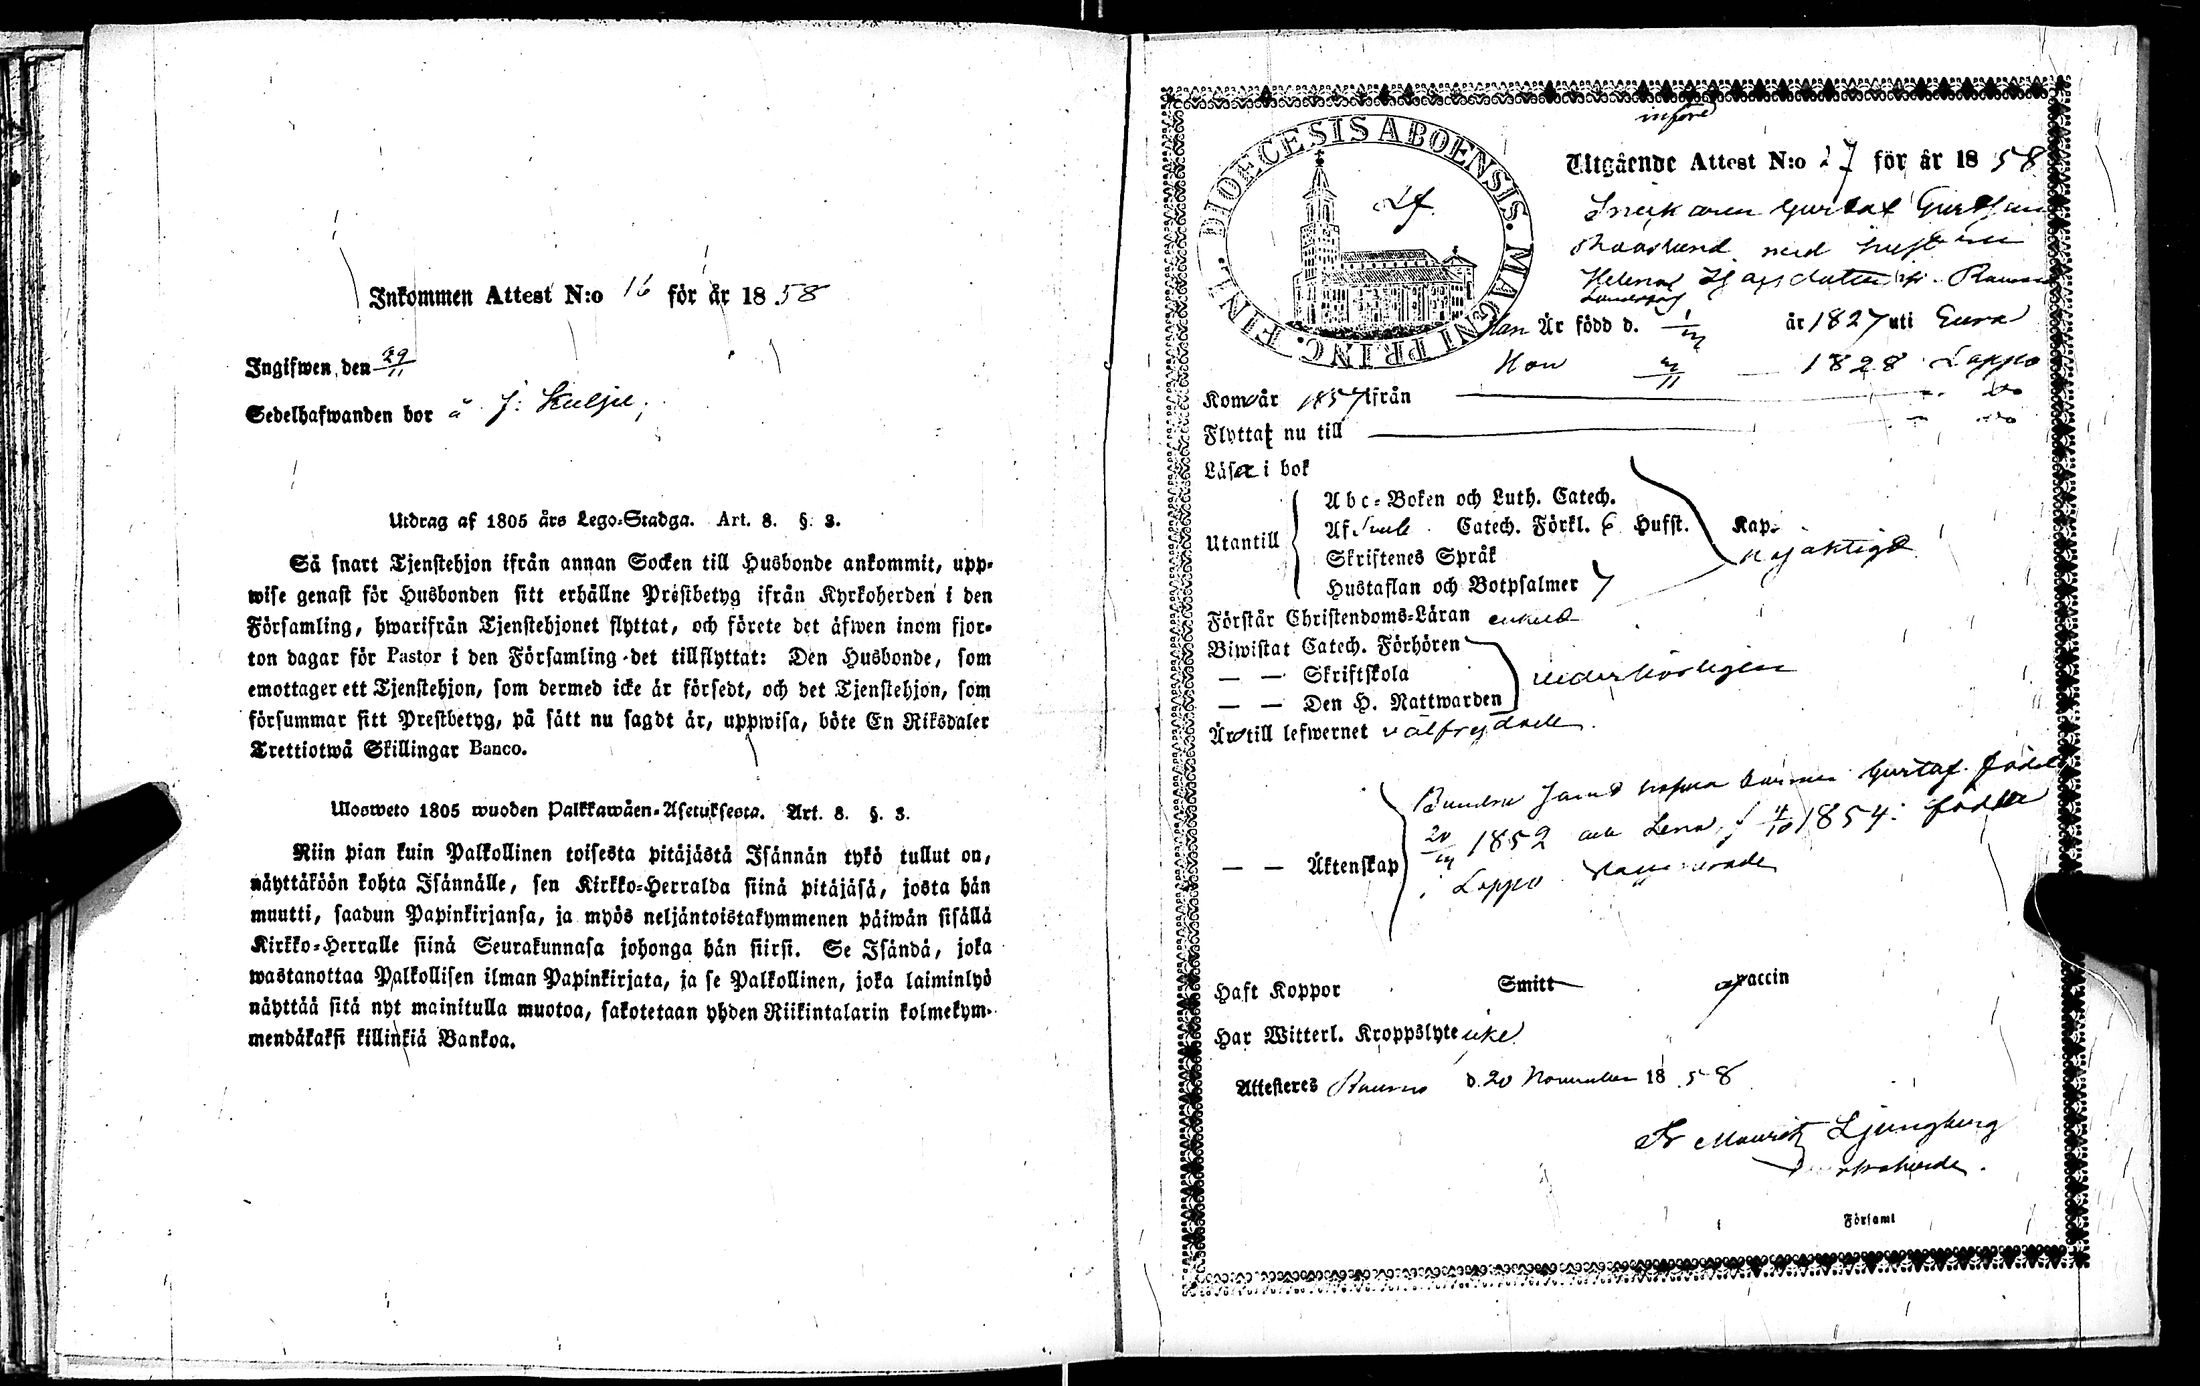 Inkommen Attest N:o 16 för år 1858
Ingifwen den 29/11
Sedelhafwanden bor å
Utdrag af 1805 års Lego-Stadga. Art. 8. §. 3.
Så snart Tjenstehjon ifrån annan Socken till Husbonde ankommit, upp-
wise genast för Husbonden sitt erhållne Prestbetyg ifrån Kyrkoherden i den
Församling, hwarifrån Tjenstehjonet flyttat, och förete det äfwen inom fjor-
ton dagar för Pastor i den Församling det tillflyttat: Den Husbonde, som
emottager ett Tjenstehjon, som dermed icke är försedt, och det Tjenstehjon, som
försummar sitt Prestbetyg, på sätt nu sagdt är, uppwisa, böte En Riksdaler
Trettiotwå Skillingar Banco.
Ulosweto 1805 wuoden Palkkawäen-Asetuksesta. Art. 8. §. 3.
Niin pian kuin Palkollinen toisesta pitäjästä Isännän tykö tullut on,
näyttäköön kohta Isännälle, sen Kirkko-Herralda siinä pitäjäsä, josta hän
muutti, saadun Papinkirjansa, ja myös neljäntoistakymmenen päiwän sisällä
Kirkko-Herralle siinä Seurakunnasa johonga hän siirsi. Se Isändä, joka
wastanottaa Palkollisen ilman Papinkirjata, ja se Palkollinen, joka laiminlyö
näyttää sitä nyt mainitulla muotoa, sakotetaan yhden Riikintalarin kolmekym-
mendäkaksi killinkiä Bankoa.
införd
DIOECESIS ABOENSIS. MAGNI PRINC. FINL.
Utgående Attest N:o 27 för år 1858
Snickaren Gustaf
med hustrun
Helena
Han Är född d. år 1827 uti Eura
Hon 1828 Lappo
Kom år 1857 ifrån
Flyttat nu till
Läsa i bok
Utantill
Abc-Boken och Luth. Catech.
Af Catech. Förkl. 6 Hufst. Kap.
Skriftenes Språk
Hustaflan och Botpsalmer
nöjaktigt
Förstår Christendoms-Läran enkelt
Biwistat Catech. Förhören
— — Skriftskola
— — Den H. Nattwarden
vederbörligen
Äro till lefwernet välfrejdade
— — Äktenskap
Gustaf född
1852 och Lena f 4/10 1854: födda
i Lappo
Haft Koppor Smitt vaccin
Har Witterl. Kroppslyte icke
Attesteres Raumo d. 20 November 1858
Fr Mauritz Ljungberg
Församl